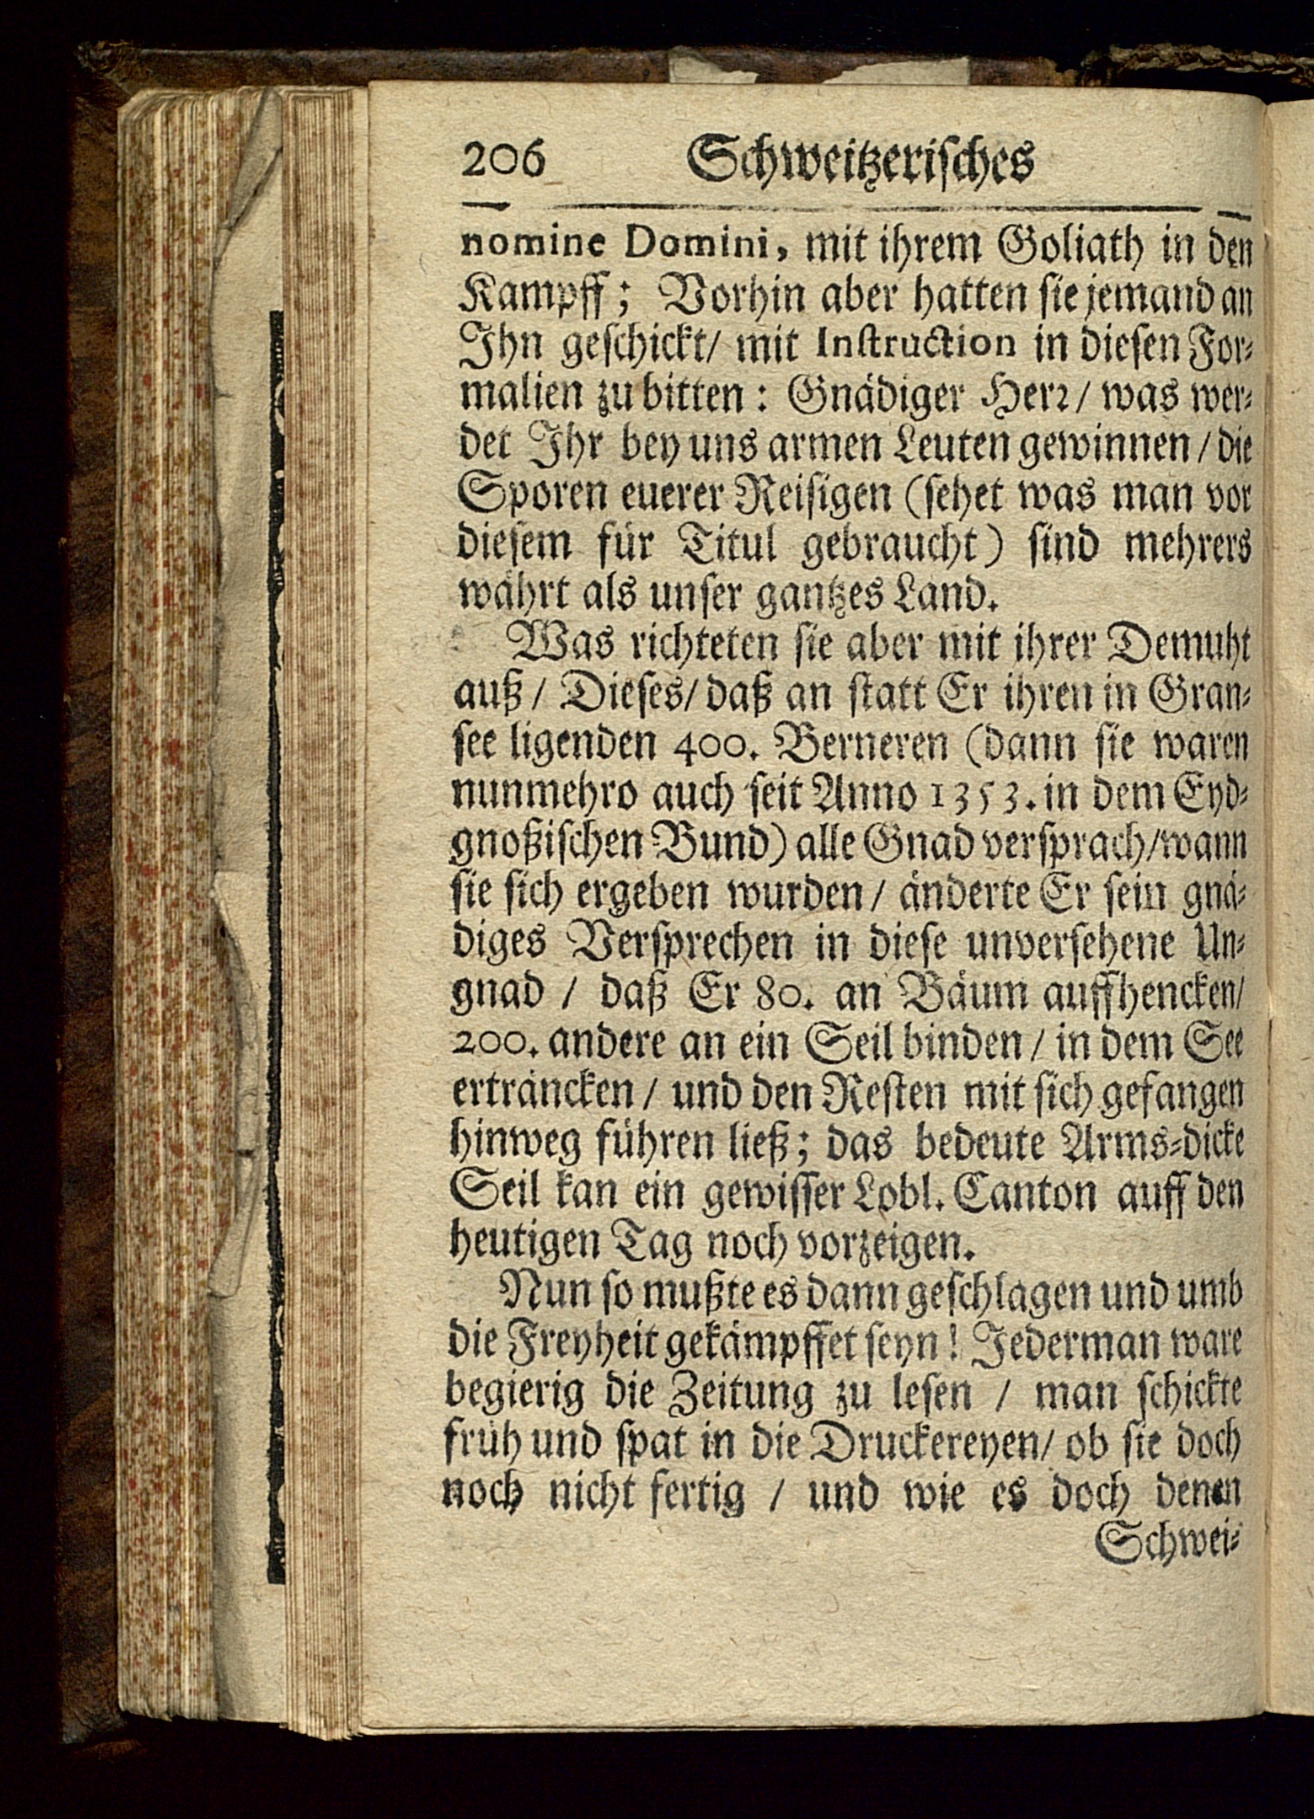 206 Schweitzerisches
nomine Domini, mit ihrem Goliath in den
Kampff; Vorhin aber hatten sie jemand an
Ihn geschickt/ mit Instruction in diesen For-
malien zu bitten: Gnädiger Herr/ was wer-
det Ihr bey uns armen Leuten gewinnen/ die
Sporen euerer Reisigen (sehet was man vor
diesem für Titul gebraucht) sind mehrers
währt als unser gantzes Land.
Was richteten sie aber mit ihrer Demuht
auß/ Dieses/ daß an statt Er ihren in Gran-
see ligenden 400. Berneren (dann sie waren
nunmehro auch seit Anno 1353. in dem Eyd-
gnoßischen Bund) alle Gnad versprach/wann
sie sich ergeben wurden/ änderte Er sein gnä-
diges Versprechen in diese unversehene Un-
gnad / daß Er 80. an Bäum auffhencken/
200. andere an ein Seil binden/ in dem See
erträncken/ und den Resten mit sich gefangen
hinweg führen ließ; das bedeute Arms-dicke
Seil kan ein gewisser Lobl. Canton auff den
heutigen Tag noch vorzeigen.
Nun so mußte es dann geschlagen und umb
die Freyheit gekämpffet seyn! Jederman ware
begierig die Zeitung zu lesen / man schickte
früh und spat in die Druckereyen/ ob sie doch
noch nicht fertig / und wie es doch denen
Schwei-